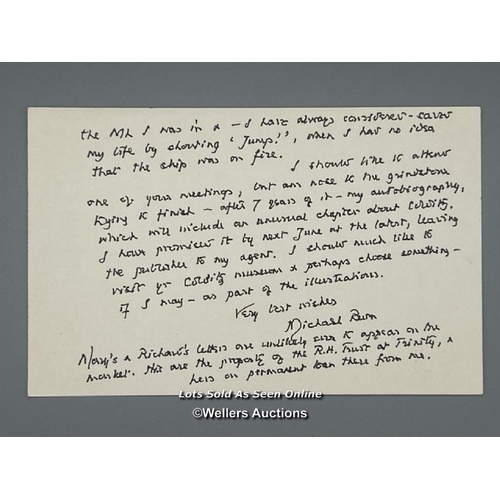 the ML I was in & - I have always considered - saved
my life by shouting 'Jump!', when I had no idea
that the ship was on fire.
I should like to attend
one of your meetings, but am nose to the grindstone
trying to finish - after 7 years of it - my autobiography,
which will include an unusual chapter about Colditz.
I have promised it by next June at the latest, leaving
the publisher to my agent. I should much like to
visit yr Colditz museum & perhaps choose something -
if I may - as part of the illustrations.
Very best wishes
Michael Burn
Mary's & Richard's letters are unlikely ever to appear on the
market. They are the property of the R.H. Trust at Trinity, &
on permanent loan there from me.
Lots Sold As Seen Online
©Wellers Auctions